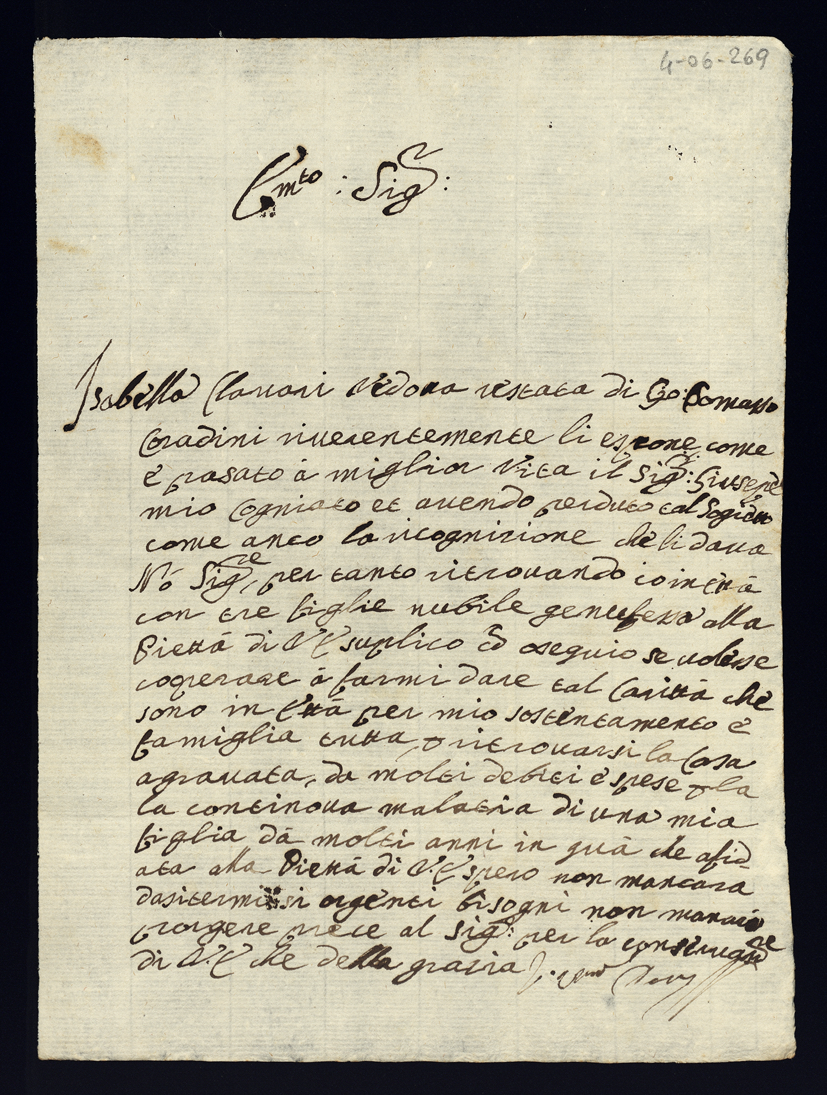 4-06-269
Emto : Sigr :
Isabella Clavari Vedova restata di Gio: Tomasso
Coradini riverentemente li espone come
è pasato à miglior Vita il Sigr: Giusepe
mio Cogniato et avendo perduto tal Sogieto
come anco la ricognizione che li dava
N.ò Sigre, per tanto ritrovando io in età
con tre figlie nubile genuflessa alla
Piettà di V.E suplico ed osequio se volesse
coperare à farmi dare tal Carittà che
sono in Ettà per mio sostentamento è
famiglia tutta, ritrovarsi la Casa
agravata, da molti debiti è spese la
la continova malatia di una mia
figlia dà molti anni in quà che afid
ata alla Pietta di V.E spero non mancara
da si termi si orgenti bisogni non mancio
porgere prece al Sigr: per la conservagne
di V.E che della grasia